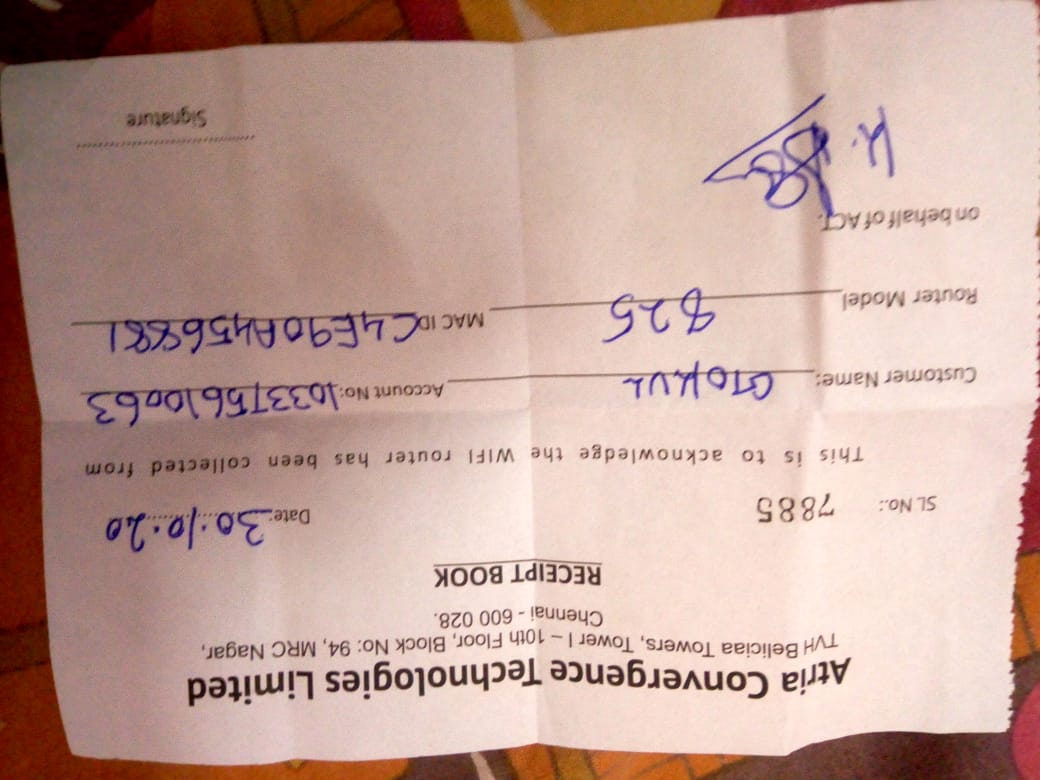 Atria Convergence Technologies Limited
TVH Beliciaa Towers, Tower I – 10th Floor, Block No: 94, MRC Nagar,
Chennai - 600 028.
RECEIPT BOOK
SL No.: 7885 Date: 30.10.20
This is to acknowledge the WIFI router has been collected from
Customer Name: GOKUL Account No: 103375610063
Router Model 825 MAC ID C4E90A456881
on behalf of ACT.
K.
Signature